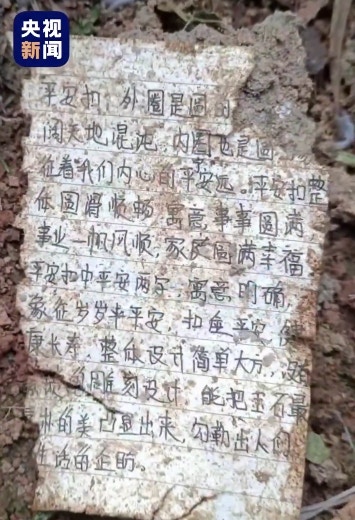 央视
新闻
平安扣,外圈是圆的
阔天地混沌,内圈也是圆
征着我们内心的平安远。平安扣整
体圆滑顺畅,寓意,事事圆满
事业一帆风顺,家庭圆满幸福
平安扣中平安两字,寓意,明确,
象征岁岁平平安,扣垒平安,健
康长寿,整体设计简单大方,
的雕刻设计,能把玉石最
的美凸显出来,勾勒出人们
生活的企盼。